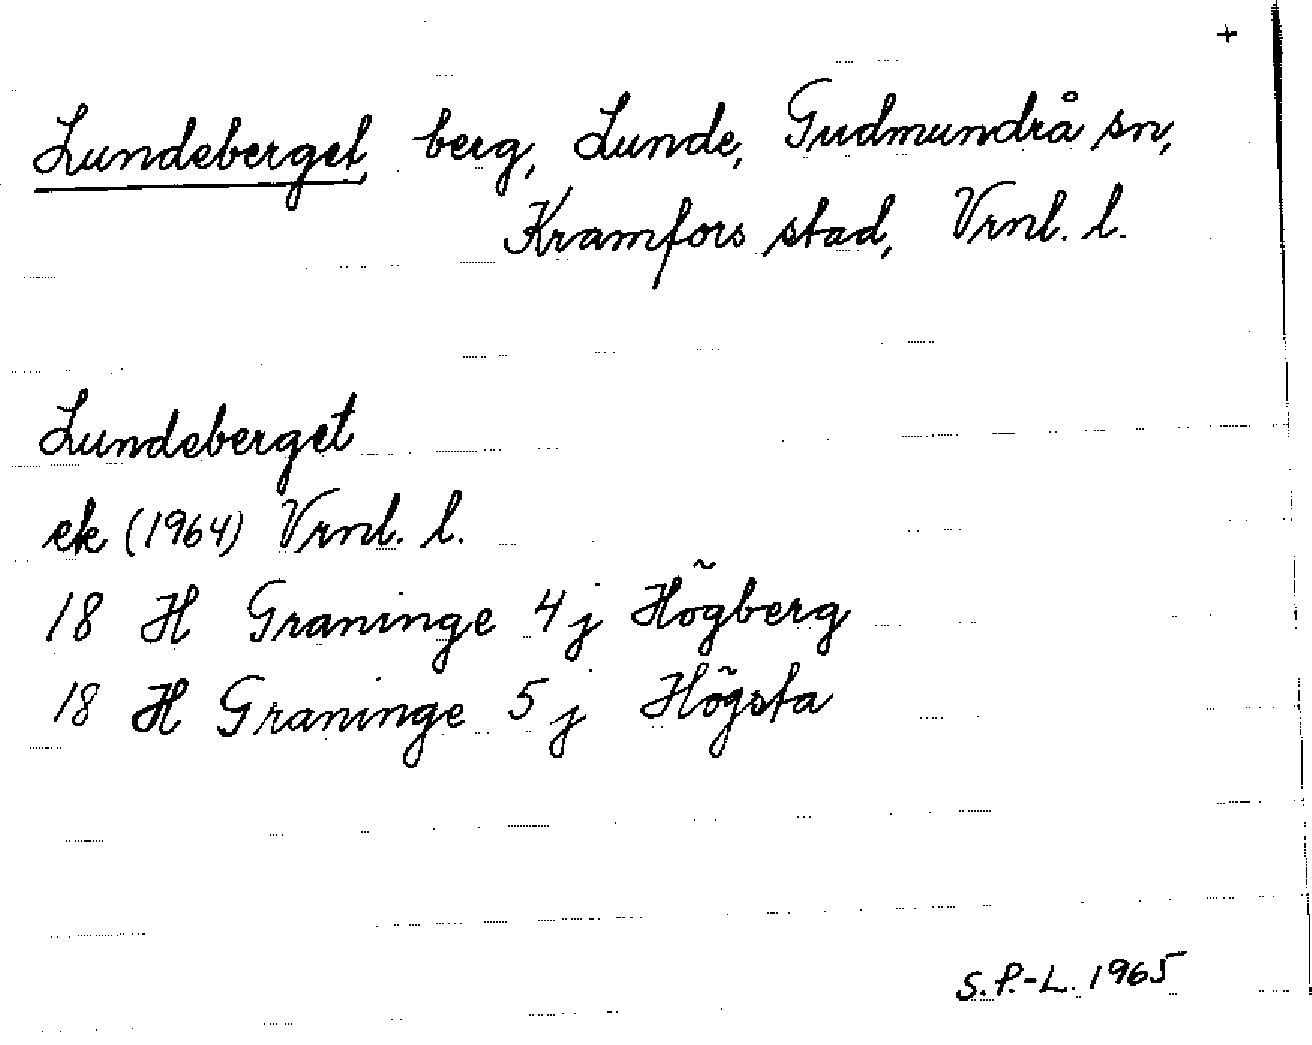 +
Lundeberget, berg, Lunde, Gudmundrå sn,
Kramfors stad, Vrnl. l.
Lundeberget
ek (1964) Vrnl. l.
18 H Graninge 4 j Högberg
18 H Graninge 5 j Högsta
S.P.-L. 1965